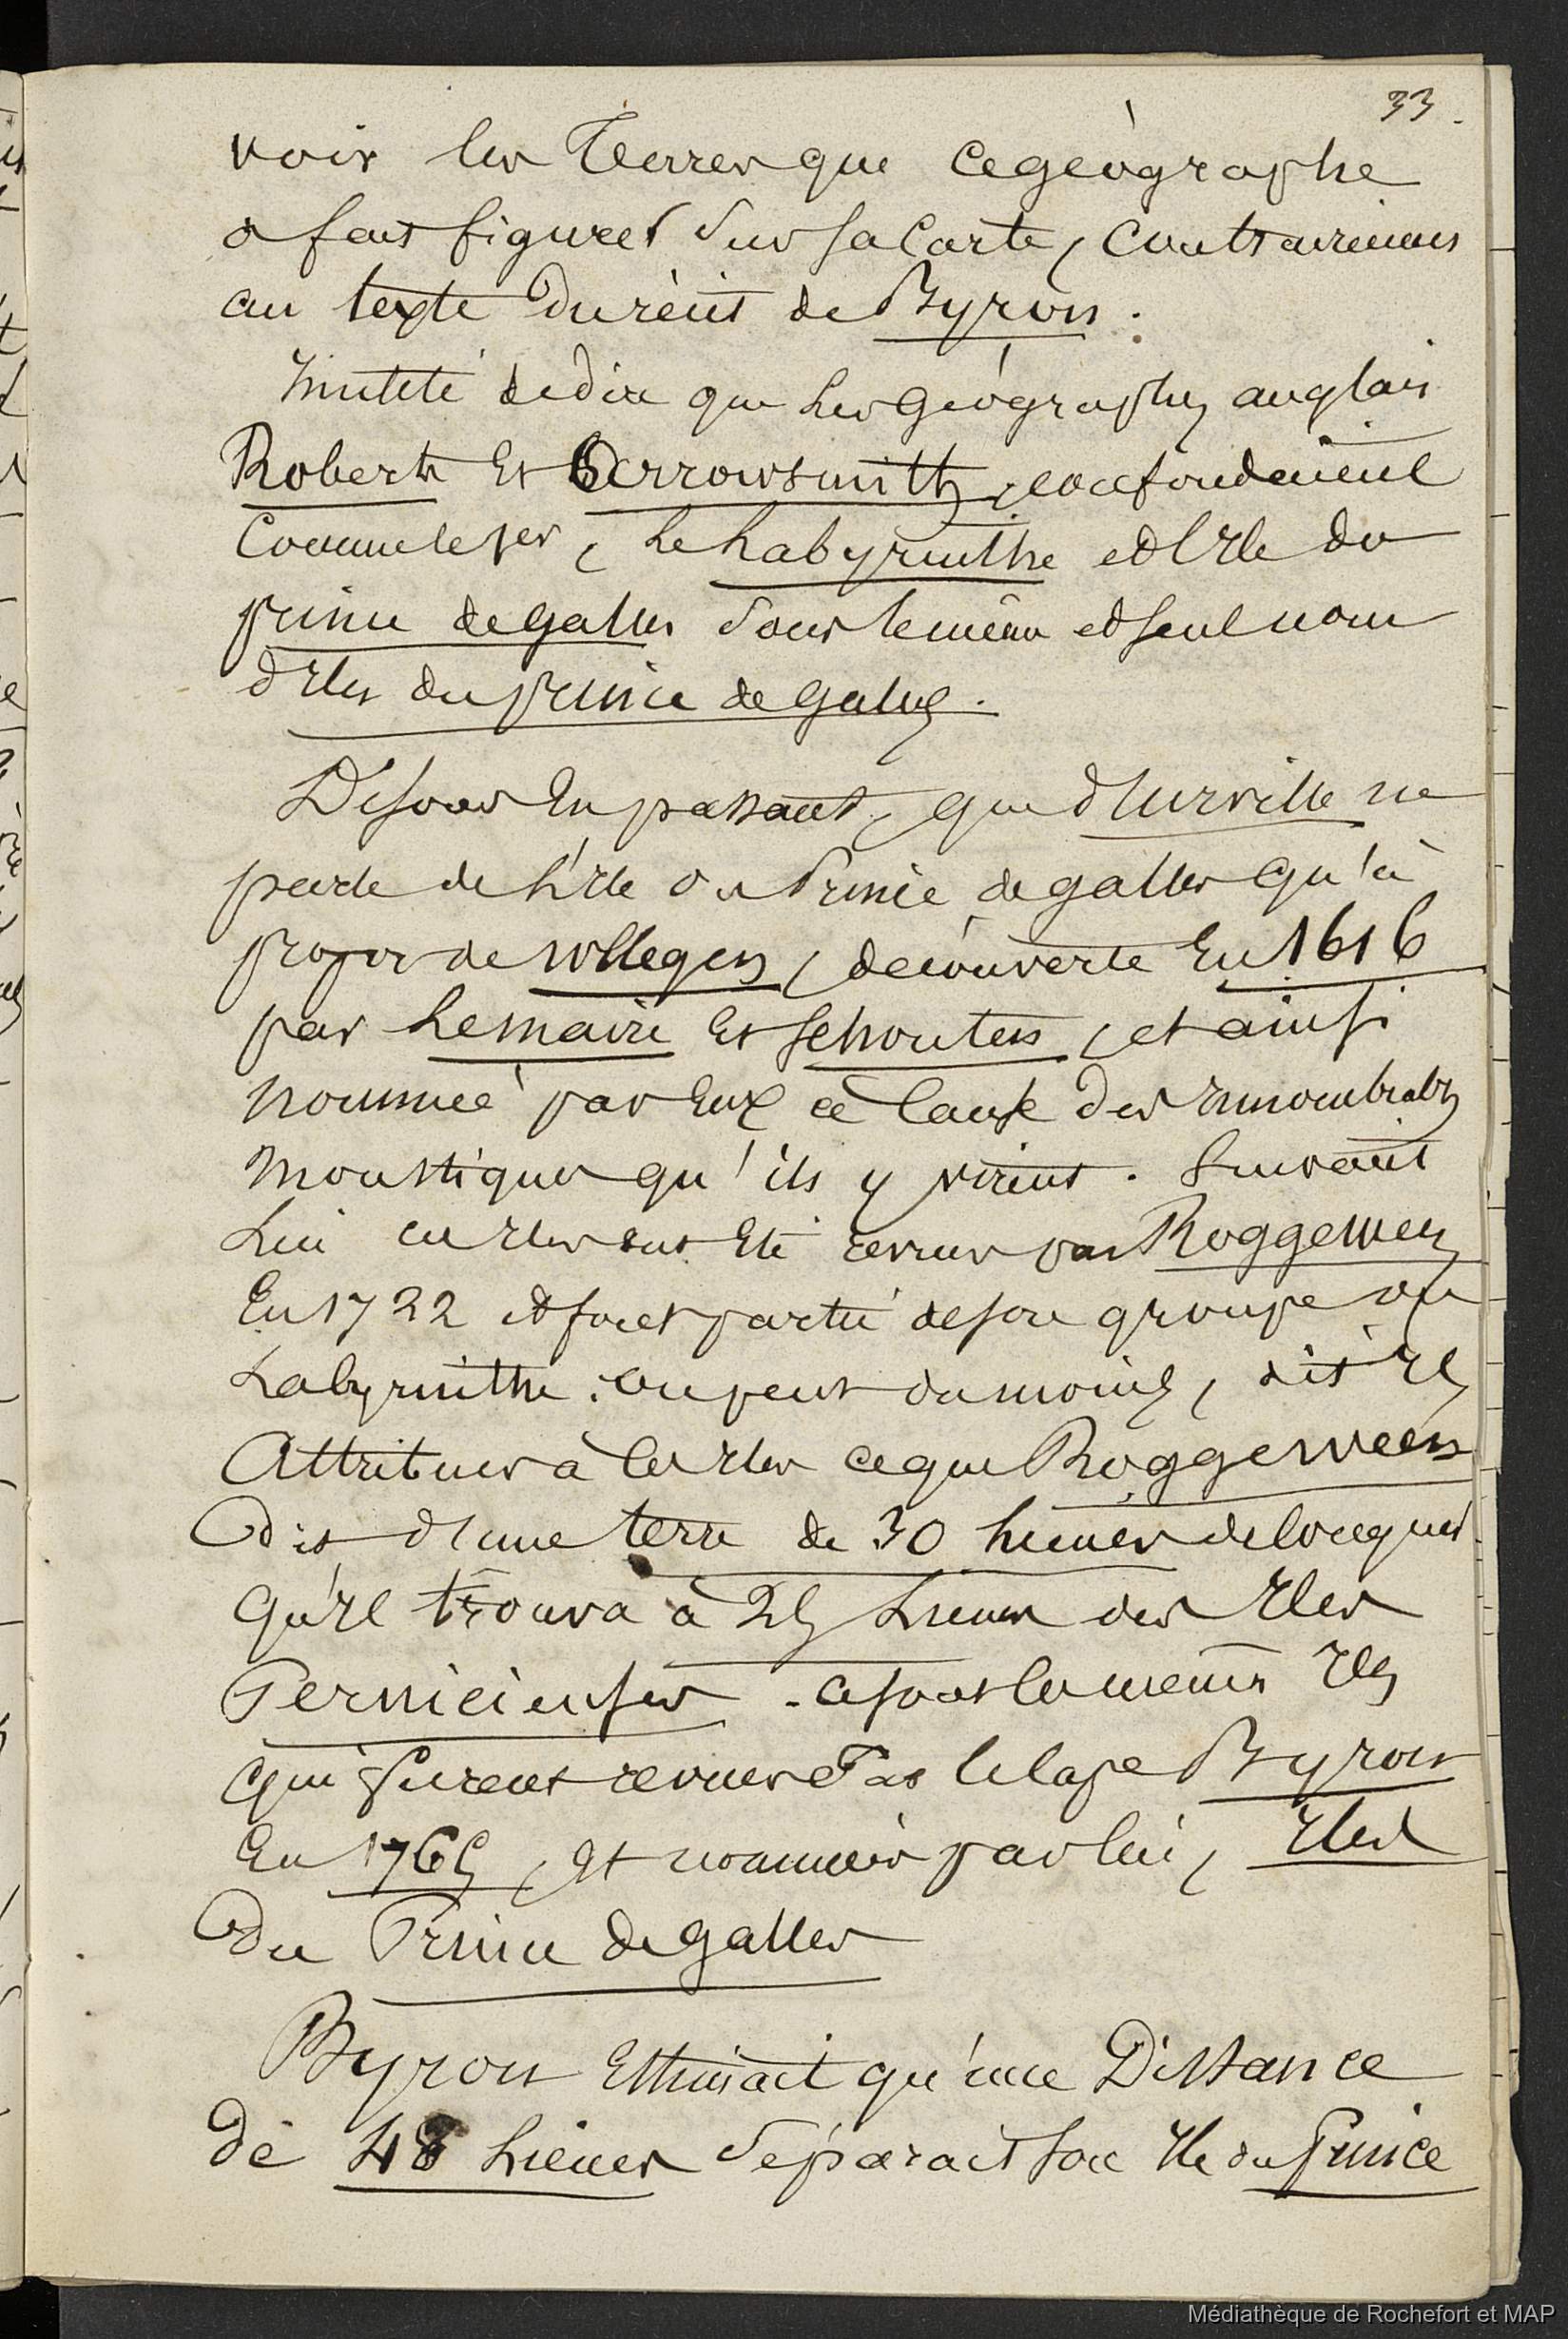 33.
voir les Terres que ce géographe
a fait figurer sur sa Carte, Contrairement
au texte du récit de Byron.
Inutile de dire que les géographes anglais
Roberts et Arrowsmith, confondaient
Comme le, le Labyrinthe et l'Ile du
prince de galles sous le même et seul nom
d'Iles du prince de galles.
Disons En passant, que d'Urville ne
parle de l'Ile du Prince de galles qu'à
propos de wllegen, découverte En 1616
par Lemaire Et Schouten, et ainsi
nommée par Eux à Cause des Innombrables
moustiques qu'ils y virent. Suivant
Lui ces Iles ont Eté revues par Roggeween
En 1722 et font partie de son groupe du
Labyrinthe. On peut du moins, dit Il,
Attribuer à ces Iles ce que Roggeween
dit d'une terre de 30 lieues de longueur
qu'Il trouva à 25 Lieues des Iles
Pernicieuses. Ce sont les mêmes Iles
qui furent revues Par le Cape Byron
En 1765, Et nommées par lui, Iles
Du Prince de galles
Byron Estimait qu'une Distance
De 48 Lieues séparait son Ile du Prince
Médiathèque de Rochefort et MAP